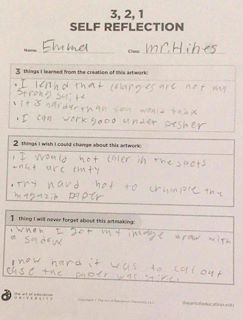 3, 2, 1
SELF REFLECTION
Name: Emma Class: mr. Hines
3 things I learned from the creation of this artwork:
• I lernd that collarges are not my
strong suite
• it is harder than you would think
• I can work good under pesher
2 things I wish I could change about this artwork:
• I would not coler in the spots
that are emty
• try hard not to crumple the
magazin paper
1 thing I will never forget about this artmaking:
• when I got my image draw with
a
• how hard it was to cut out
the paper was
the art of education
UNIVERSITY
theartofeducation.edu